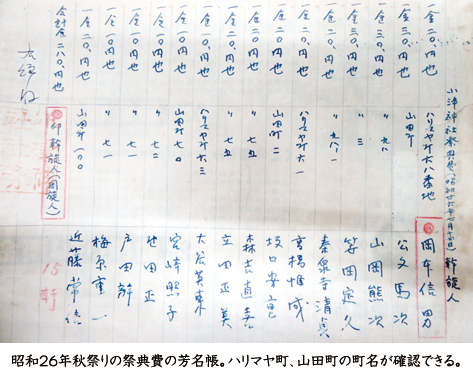 小津神社祭典費
一金二〇.円也 ハリマヤ町六八番地 岡本信男
一金三〇.円也 山田町 公文馬次
一金三〇.円也 〃 九八 山岡熊次
一金二〇.円也 〃 三 笹岡定久
一金二〇.円也 〃 九八ノ一 秦泉寺清貞
一金二〇.円也 ハリマヤ町六一 高橋惟成
一金二〇.円也 山田町二 坂口安重
一金一〇.円也 〃 七五 森吉直喜
一金一〇.円也 〃 七五 立田正美
一金一〇.円也 ハリマヤ町六三 大谷英東
一金一〇.円也 山田町七〇 宮崎照子
一金一〇.円也 〃 七二 世田正
一金一〇円也 〃 七一 戸田幹
一金二〇.円也 〃 七一 梅原重一
一金二〇.円也 山田町一〇〇 近藤常信
合計金二八〇.円也
印幹旋人(周旋人)
15軒
昭和26年秋祭りの祭典費の芳名帳。ハリマヤ町、山田町の町名が確認できる。